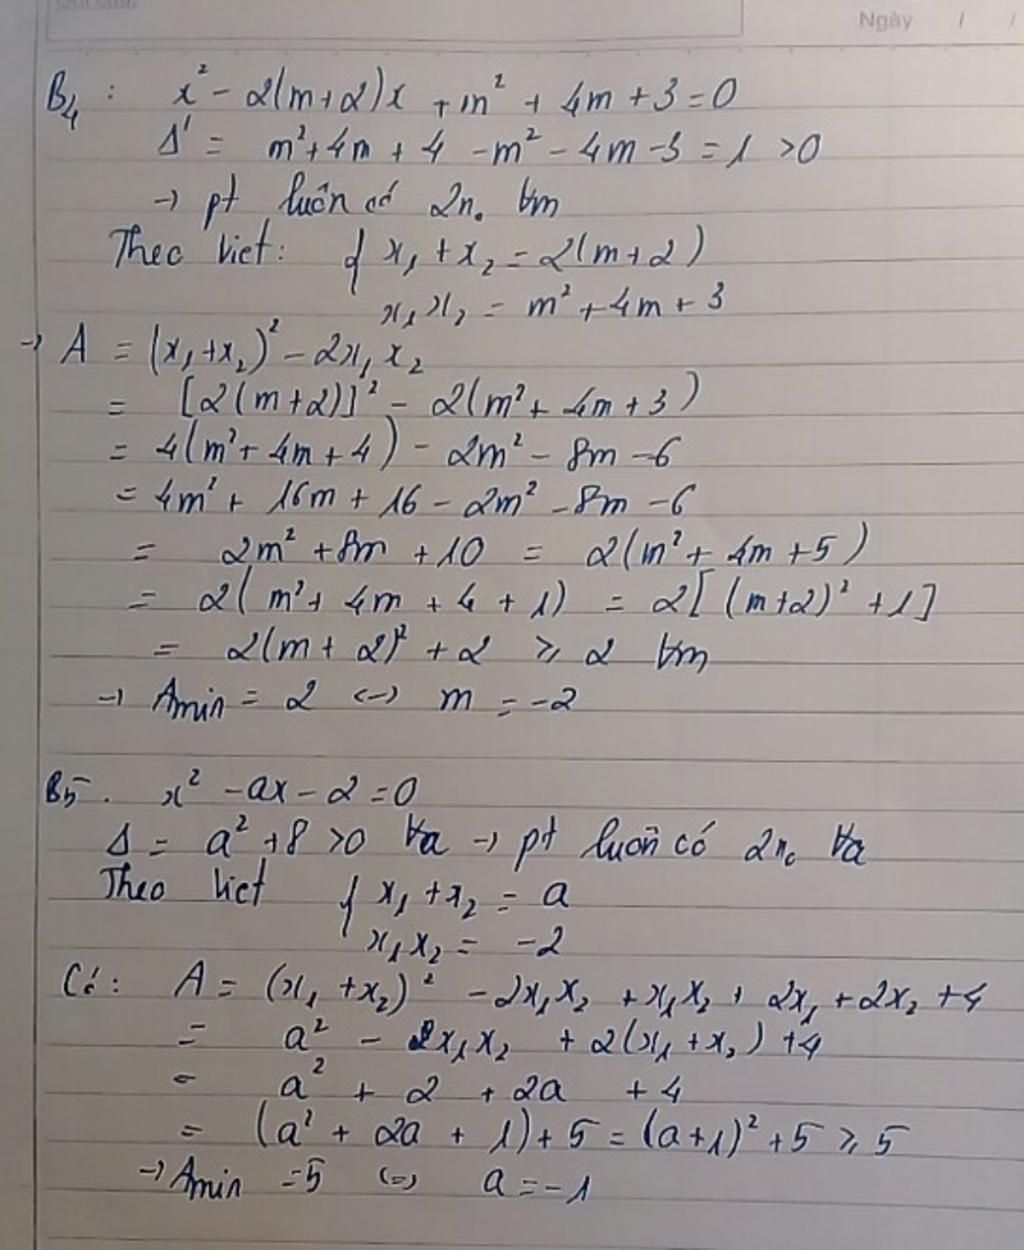 Ngày / /
B4 : x² - 2(m+2)x + m² + 4m + 3 = 0
Δ' = m² + 4m + 4 - m² - 4m - 3 = 1 > 0
→ pt luôn có 2n₀ ∀m
Theo Viet: { x₁ + x₂ = 2(m+2)
x₁x₂ = m² + 4m + 3
→ A = (x₁+x₂)² - 2x₁x₂
= [2(m+2)]² - 2(m² + 4m + 3)
= 4(m² + 4m + 4) - 2m² - 8m - 6
= 4m² + 16m + 16 - 2m² - 8m - 6
= 2m² + 8m + 10 = 2(m² + 4m + 5)
= 2(m² + 4m + 4 + 1) = 2[(m+2)² + 1]
= 2(m + 2)² + 2 ≥ 2 ∀m
→ Amin = 2 <-> m = -2
B5. x² - ax - 2 = 0
Δ = a² + 8 > 0 ∀a → pt luôn có 2n₀ ∀a
Theo Viet { x₁ + x₂ = a
x₁x₂ = -2
Có: A = (x₁ + x₂)² - 2x₁x₂ + x₁x₂ + 2x₁ + 2x₂ + 4
= a² - x₁x₂ + 2(x₁ + x₂) + 4
= a² + 2 + 2a + 4
= (a² + 2a + 1) + 5 = (a+1)² + 5 ≥ 5
→ Amin = 5 <=> a = -1